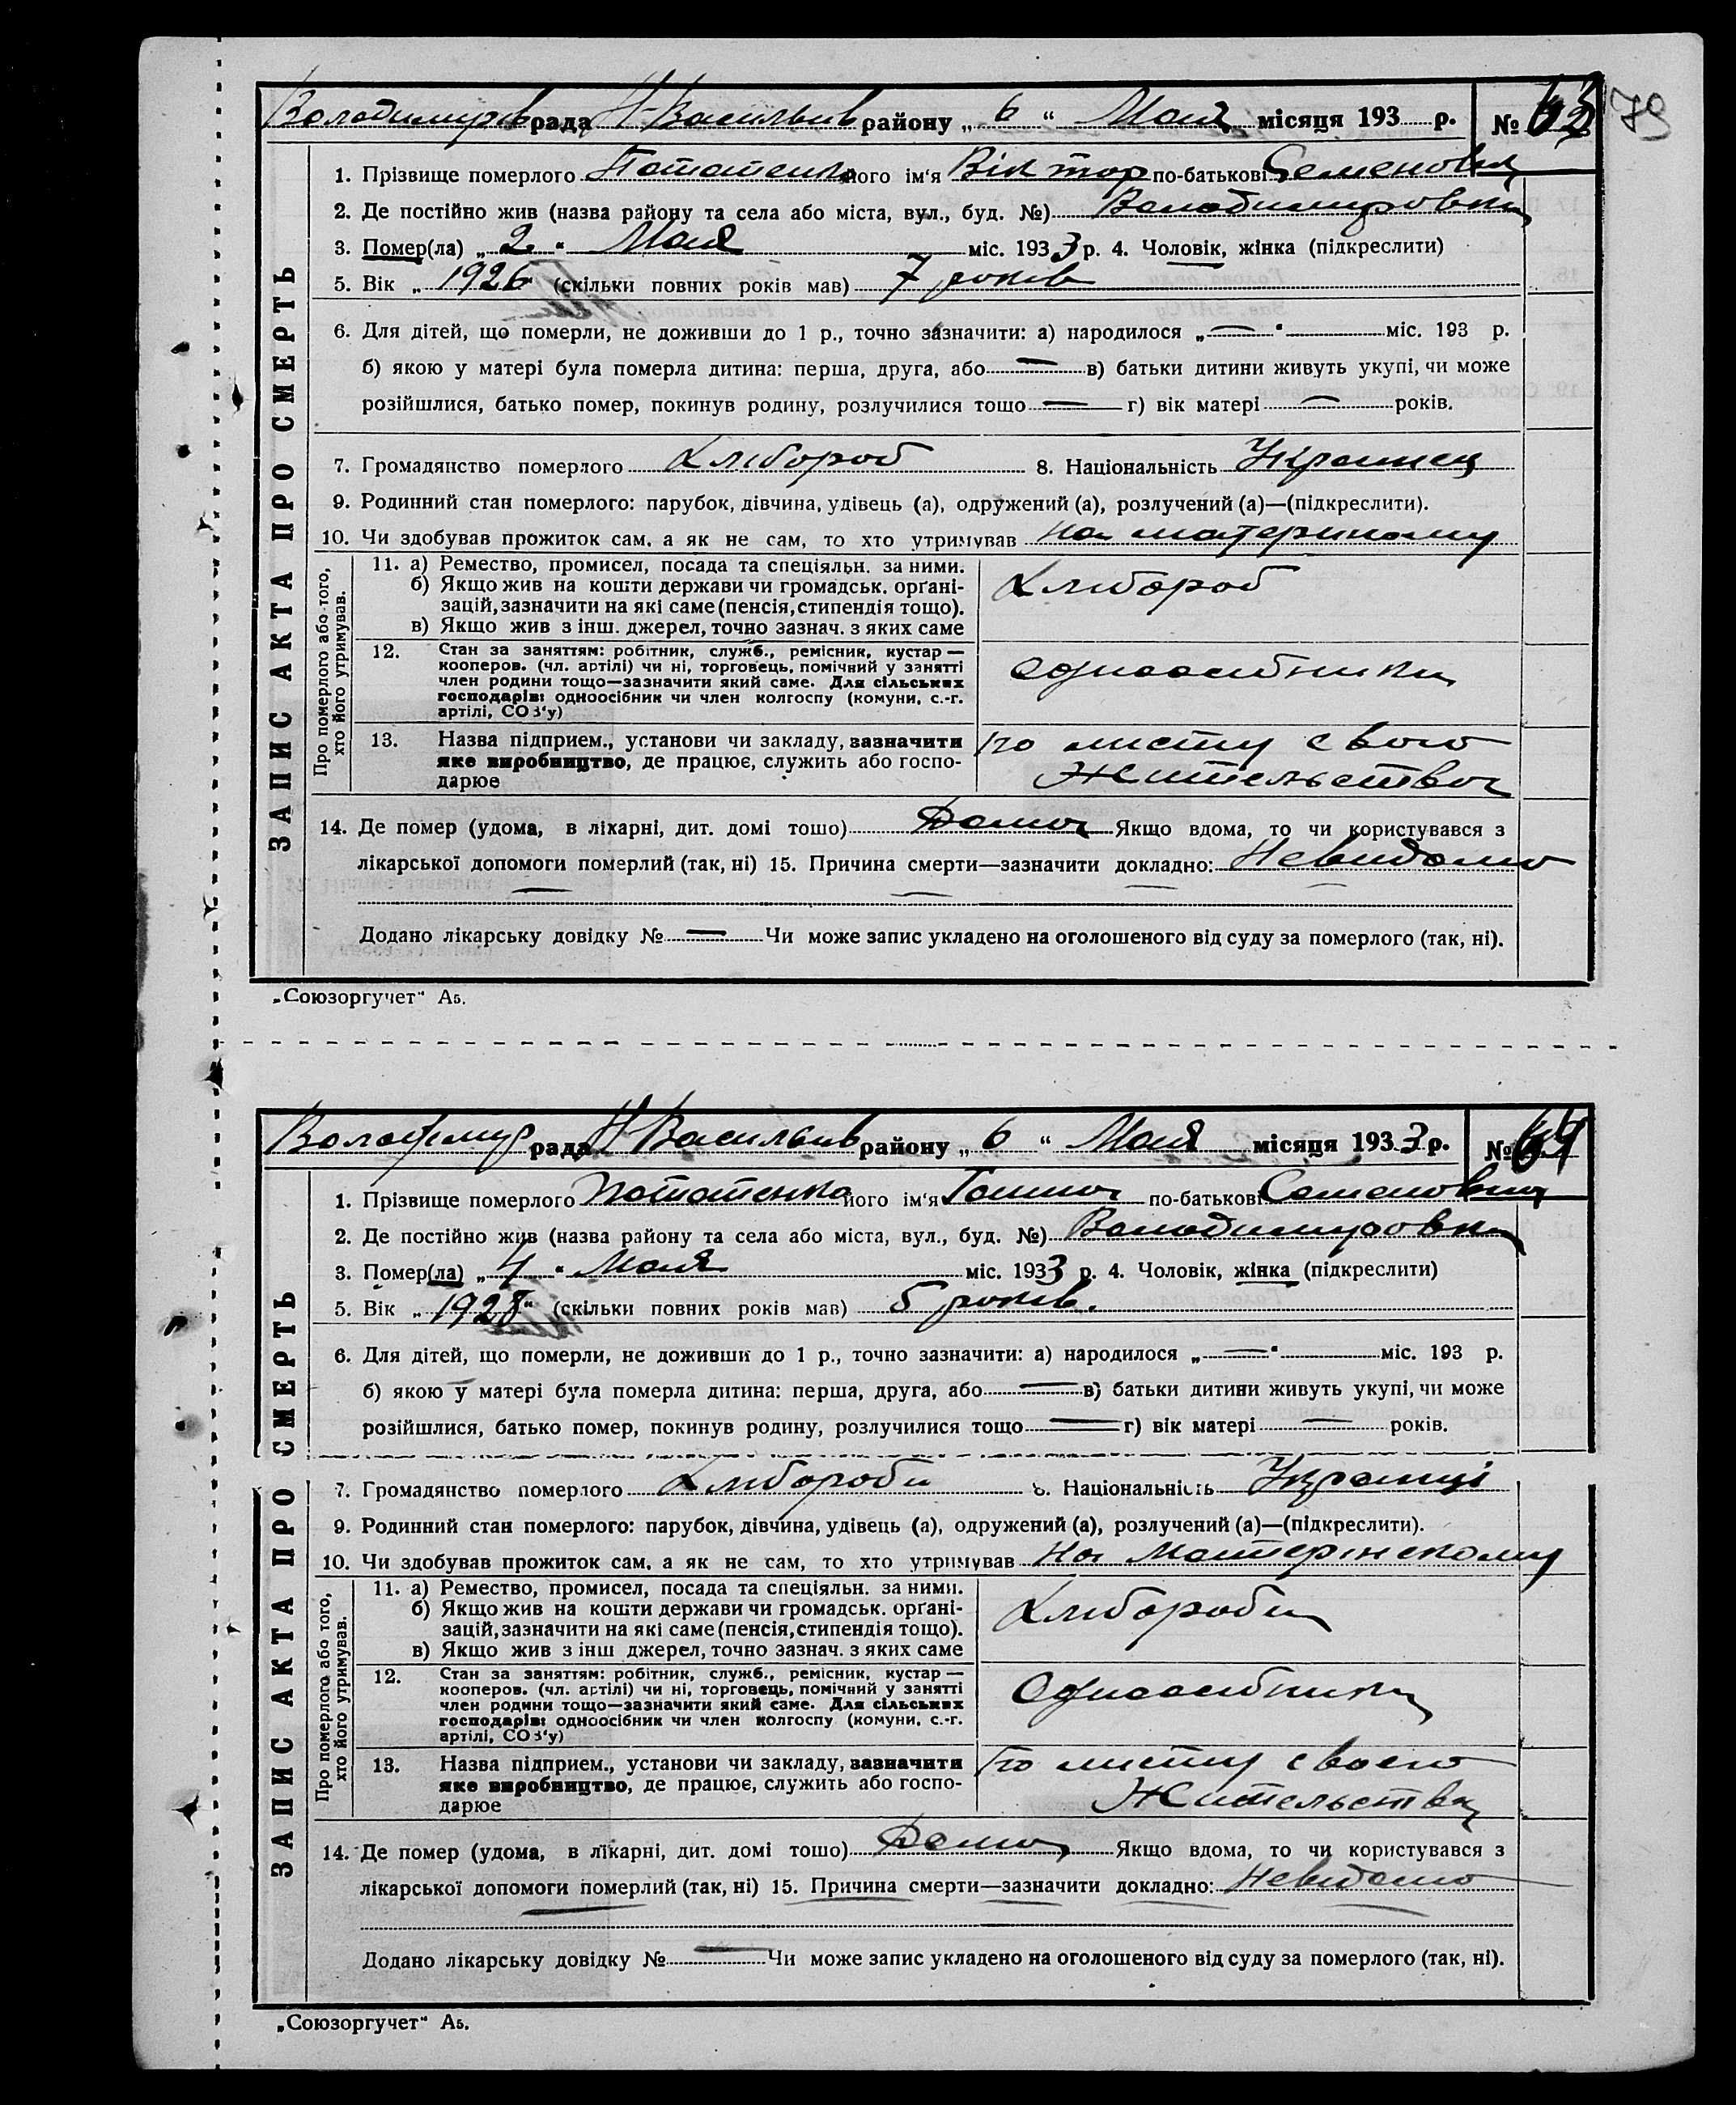 Володимирів рада Н-Васильів району „ 6 “ Мая місяця 193 р. № 63
79
1. Прізвище померлого Потатенко його ім'я Віктор по-батькові Семенович
2. Де постійно жив (назва району та села або міста, вул., буд. №) Володимировка
3. Помер(ла) „ 2 “ Мая міс. 1933 р. 4. Чоловік, жінка (підкреслити)
5. Вік „ 1926 “ (скільки повних років мав) 7 років
6. Для дітей, що померли, не доживши до 1 р., точно зазначити: а) народилося „ — “ міс. 193 р.
б) якою у матері була померла дитина: перша, друга, або — в) батьки дитини живуть укупі, чи може
розійшлися, батько помер, покинув родину, розлучилися тощо — г) вік матері — років.
7. Громадянство померлого Хлібороб 8. Національність Украинец
9. Родинний стан померлого: парубок, дівчина, удівець (а), одружений (а), розлучений (а)—(підкреслити).
10. Чи здобував прожиток сам, а як не сам, то хто утримував на
11. а) Ремество, промисел, посада та спеціяльн. за ними.
б) Якщо жив на кошти держави чи громадськ. орґані-
зацій, зазначити на які саме (пенсія, стипендія тощо).
в) Якщо жив з інш. джерел, точно зазнач. з яких саме
Хлібороб
12. Стан за заняттям: робітник, служб., ремісник, кустар—
кооперов. (чл. артілі) чи ні, торговець, помічний у занятті
член родини тощо—зазначити який саме. Для сільських
господарів: одноосібник чи член колгоспу (комуни, с.-г.
артілі, СОЗ'у)
Одноосібники
13. Назва підприєм., установи чи закладу, зазначити
яке виробництво, де працює, служить або госпо-
дарює
по місту свого
Жительства
14. Де помер (удома, в лікарні, дит. домі тощо) Дома Якщо вдома, то чи користувався з
лікарської допомоги померлий (так, ні) 15. Причина смерти—зазначити докладно: Невидомо
Додано лікарську довідку № — Чи може запис укладено на оголошеного від суду за померлого (так, ні).
ЗАПИС АКТА ПРО СМЕРТЬ
Про померлого або того,
хто його утримував.
„Союзоргучет“ А5.
Володимир рада Н Васильів району „ 6 “ Мая місяця 1933 р. № 64
1. Прізвище померлого Потатенко його ім'я Ганна по-батькові Семеновна
2. Де постійно жив (назва району та села або міста, вул., буд. №) Володимировка
3. Помер(ла) „ 4 “ Мая міс. 1933 р. 4. Чоловік, жінка (підкреслити)
5. Вік „ 1928 “ (скільки повних років мав) 5 років.
6. Для дітей, що померли, не доживши до 1 р., точно зазначити: а) народилося „ — “ міс. 193 р.
б) якою у матері була померла дитина: перша, друга, або — в) батьки дитини живуть укупі, чи може
розійшлися, батько помер, покинув родину, розлучилися тощо — г) вік матері — років.
7. Громадянство померлого Хлібороби 8. Національність Украинці
9. Родинний стан померлого: парубок, дівчина, удівець (а), одружений (а), розлучений (а)—(підкреслити).
10. Чи здобував прожиток сам, а як не сам, то хто утримував На Матерінскому
11. а) Ремество, промисел, посада та спеціяльн. за ними.
б) Якщо жив на кошти держави чи громадськ. орґані-
зацій, зазначити на які саме (пенсія, стипендія тощо).
в) Якщо жив з інш джерел, точно зазнач. з яких саме
Хлібороби
12. Стан за заняттям: робітник, служб., ремісник, кустар—
кооперов. (чл. артілі) чи ні, торговець, помічний у занятті
член родини тощо—зазначити який саме. Для сільських
господарів: одноосібник чи член колгоспу (комуни, с.-г.
артілі, СОЗ'у)
Одноосібники
13. Назва підприєм., установи чи закладу, зазначити
яке виробництво, де працює, служить або госпо-
дарює
По місту своего
Жительства
14. Де помер (удома, в лікарні, дит. домі тощо) Дома Якщо вдома, то чи користувався з
лікарської допомоги померлий (так, ні) 15. Причина смерти—зазначити докладно: Невидомо
Додано лікарську довідку № — Чи може запис укладено на оголошеного від суду за померлого (так, ні).
ЗАПИС АКТА ПРО СМЕРТЬ
Про померлого або того,
хто його утримував.
„Союзоргучет“ А5.